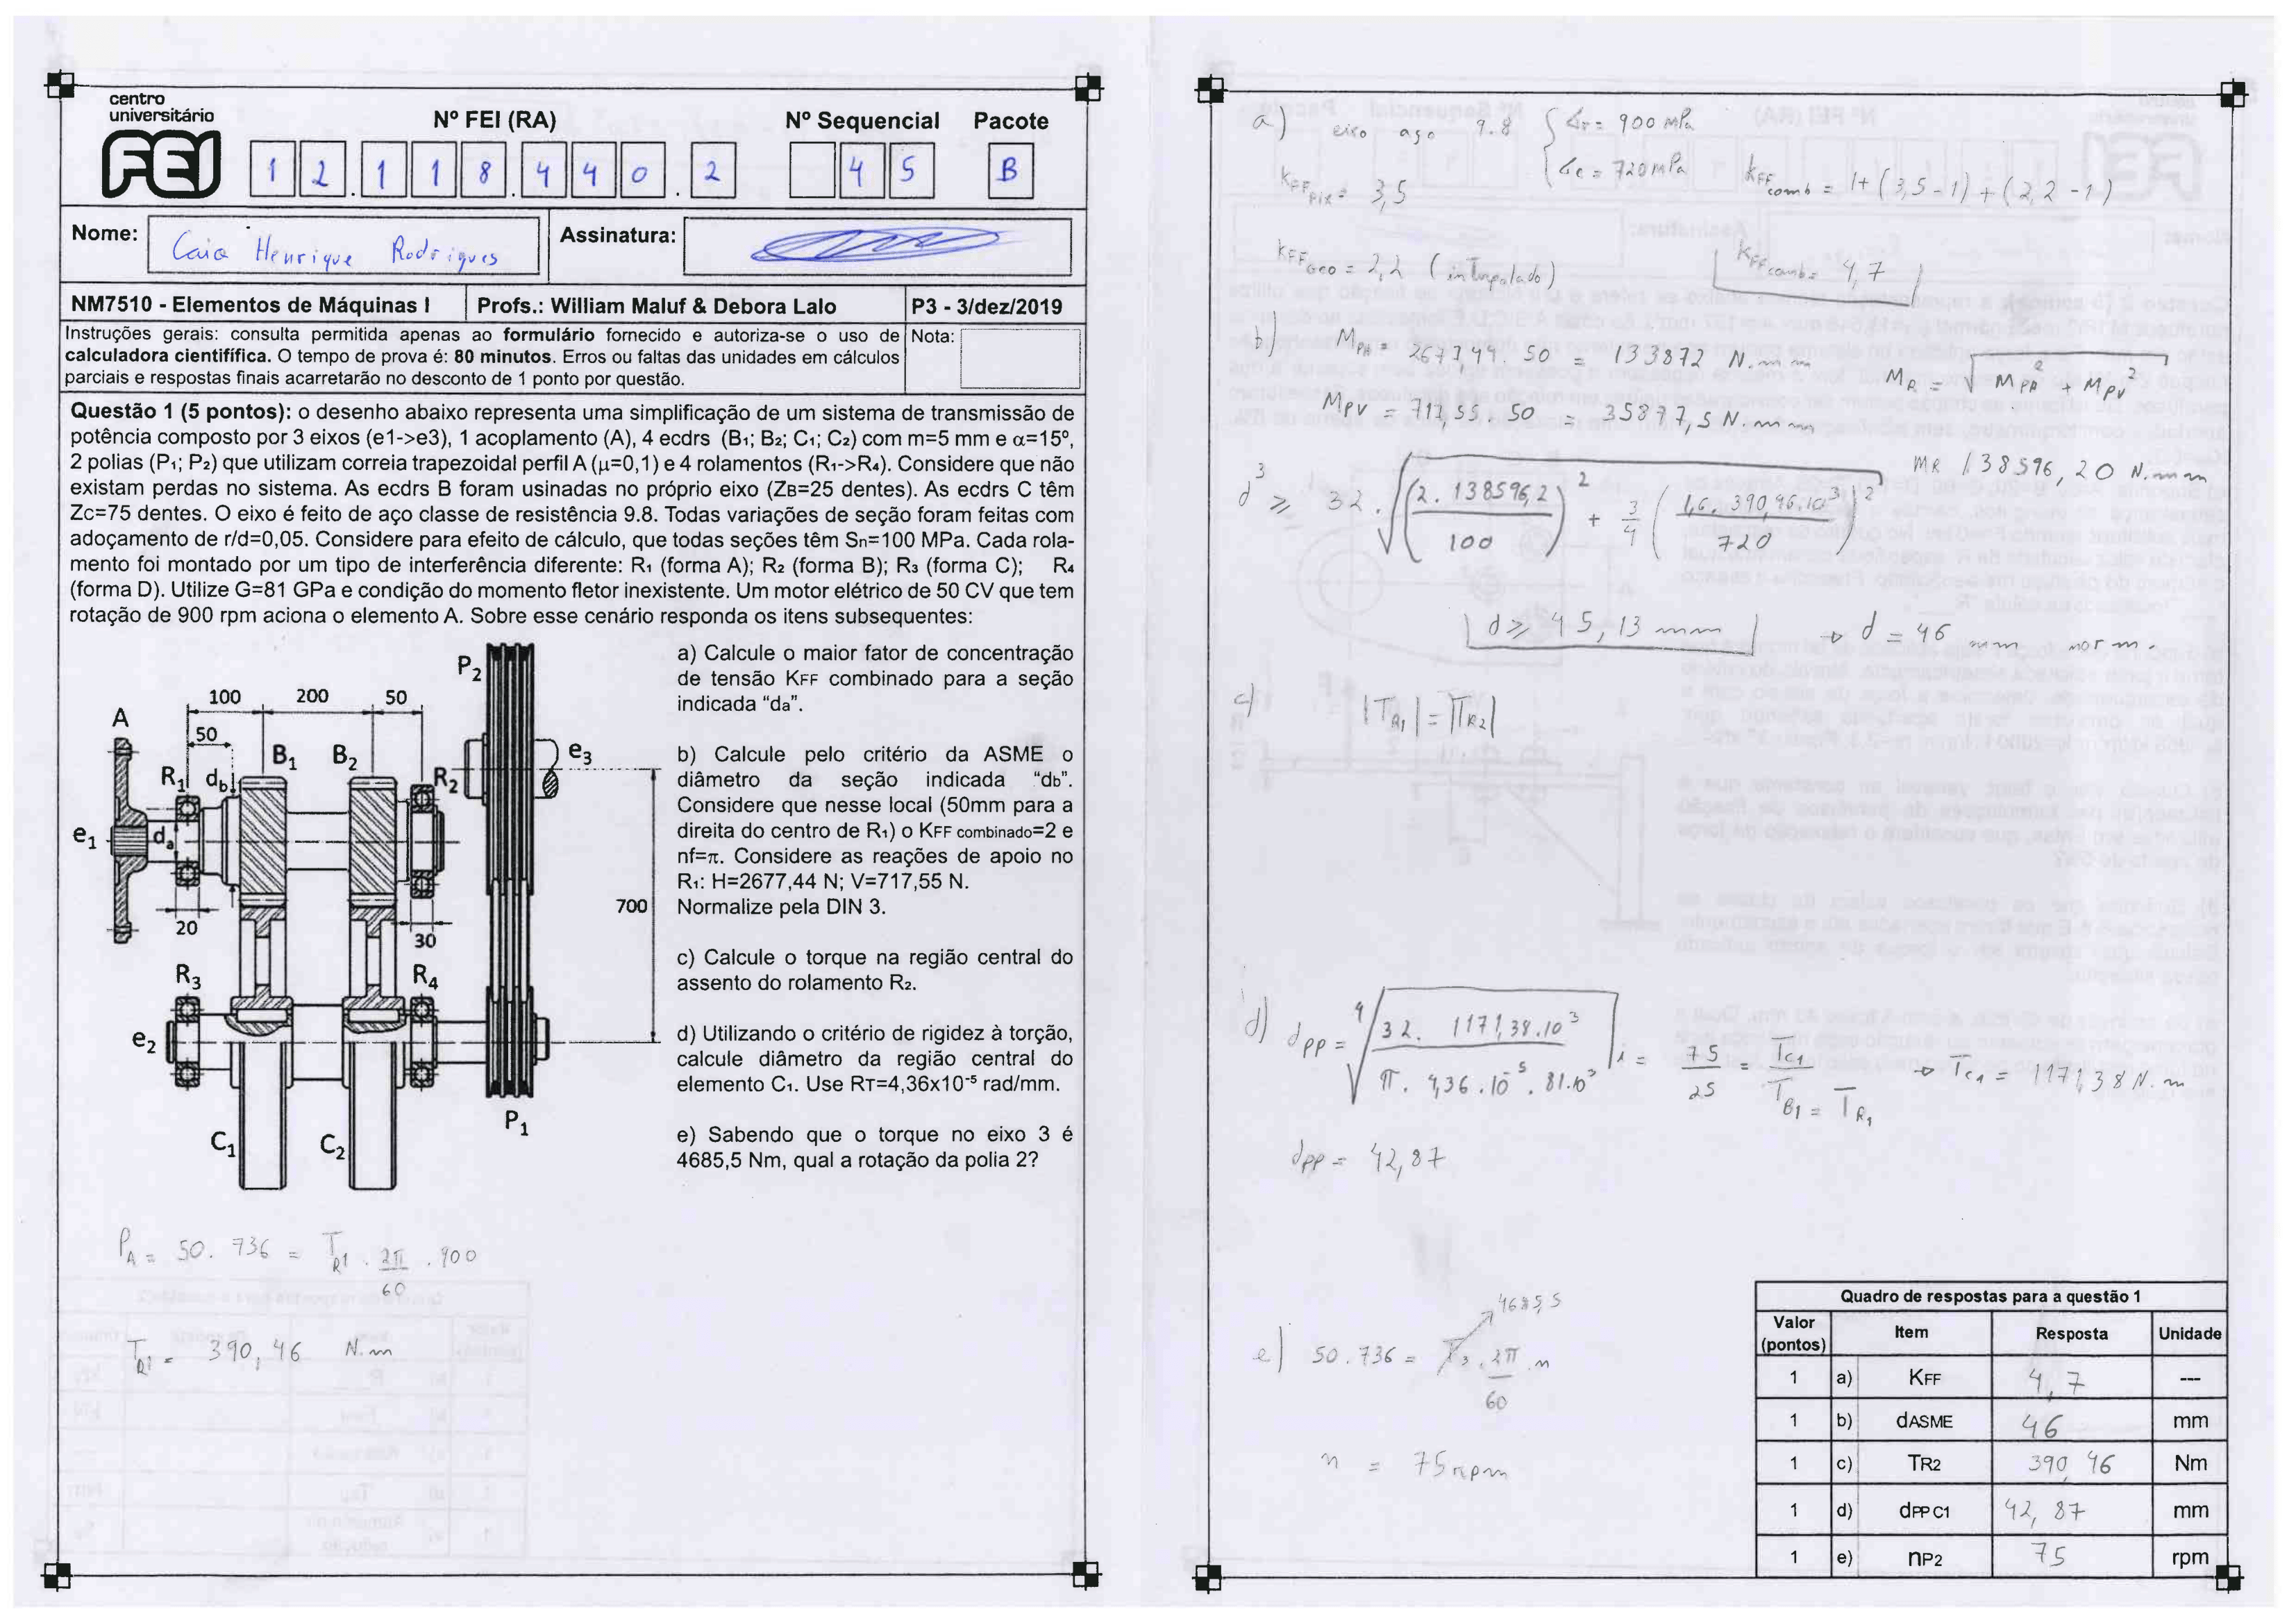 centro
universitário
FEI
Nº FEI (RA)
Nº Sequencial
Pacote
1 2 . 1 1 8 . 4 4 0 . 2
4 5
B
Nome:
Caio Henrique Rodrigues
Assinatura:
NM7510 - Elementos de Máquinas I
Profs.: William Maluf & Debora Lalo
P3 - 3/dez/2019
Instruções gerais: consulta permitida apenas ao formulário fornecido e autoriza-se o uso de
calculadora cientifífica. O tempo de prova é: 80 minutos. Erros ou faltas das unidades em cálculos
parciais e respostas finais acarretarão no desconto de 1 ponto por questão.
Nota:
Questão 1 (5 pontos): o desenho abaixo representa uma simplificação de um sistema de transmissão de
potência composto por 3 eixos (e1->e3), 1 acoplamento (A), 4 ecdrs (B1; B2; C1; C2) com m=5 mm e α=15º,
2 polias (P1; P2) que utilizam correia trapezoidal perfil A (μ=0,1) e 4 rolamentos (R1->R4). Considere que não
existam perdas no sistema. As ecdrs B foram usinadas no próprio eixo (ZB=25 dentes). As ecdrs C têm
Zc=75 dentes. O eixo é feito de aço classe de resistência 9.8. Todas variações de seção foram feitas com
adoçamento de r/d=0,05. Considere para efeito de cálculo, que todas seções têm Sn=100 MPa. Cada rola-
mento foi montado por um tipo de interferência diferente: R1 (forma A); R2 (forma B); R3 (forma C); R4
(forma D). Utilize G=81 GPa e condição do momento fletor inexistente. Um motor elétrico de 50 CV que tem
rotação de 900 rpm aciona o elemento A. Sobre esse cenário responda os itens subsequentes:
a) Calcule o maior fator de concentração
de tensão KFF combinado para a seção
indicada “da”.
b) Calcule pelo critério da ASME o
diâmetro da seção indicada “db”.
Considere que nesse local (50mm para a
direita do centro de R1) o KFF combinado=2 e
nf=π. Considere as reações de apoio no
R1: H=2677,44 N; V=717,55 N.
Normalize pela DIN 3.
c) Calcule o torque na região central do
assento do rolamento R2.
d) Utilizando o critério de rigidez à torção,
calcule diâmetro da região central do
elemento C1. Use RT=4,36x10-5 rad/mm.
e) Sabendo que o torque no eixo 3 é
4685,5 Nm, qual a rotação da polia 2?
P2
100 200 50
A
50
B1 B2
e3
R1 db R2
e1 da
700
20 30
R3 R4
e2
C1 C2
P1
PA = 50. 736 = TR1 . 2π/60 . 900
TR1 = 390,46 N.m
a) eixo aço 9.8 { σr = 900 MPa
σe = 720 MPa
KFF Fix = 3,5
KFF comb = 1+(3,5-1)+(2,2-1)
KFF Geo = 2,2 (intrpolado)
KFF comb = 4,7
b) MPH = 2677,44. 50 = 133872 N.mm
MR = √ MPH² + MPV²
MPV = 717,55. 50 = 35877,5 N.mm
MR 138596,20 N.mm
d³ ≥ 32. √(2. 138596,2 / 100)² + 3/4 (1,6. 390,46.10³ / 720)²
d ≥ 45,13 mm → d = 46 mm norm.
c) |TR1| = |TR2|
d) dPP = ⁴√ 32. 1171,38.10³ / π. 4,36.10⁻⁵. 81.10³
i = 75/25 = TC1/TB1 = TR1 → TC1 = 1171,38 N.m
dPP = 42,87
4685,5
e) 50.736 = T3. 2π/60 .n
n = 75 rpm
Quadro de respostas para a questão 1
Valor (pontos) Item Resposta Unidade
1 a) KFF 4,7 ---
1 b) dASME 46 mm
1 c) TR2 390,46 Nm
1 d) dPP C1 42,87 mm
1 e) nP2 75 rpm